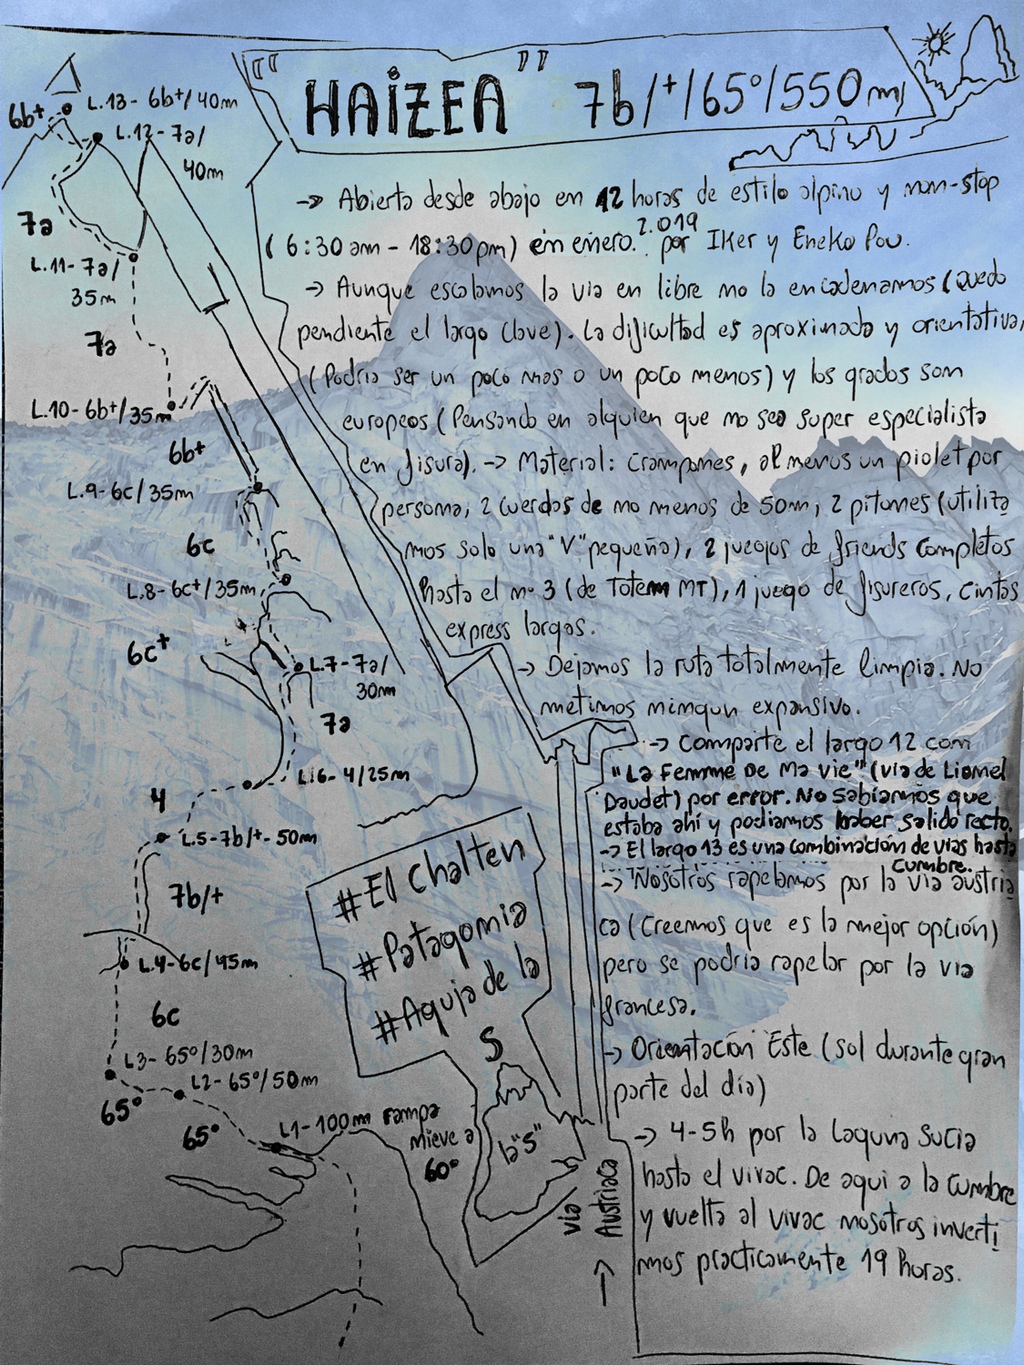 "HAIZEA" 7b/+/65º/550m
→ Abierta desde abajo en 12 horas de estilo alpino y non-stop
(6:30 am - 18:30 pm) en enero. 2.019 por Iker y Eneko Pou.
→ Aunque escalamos la via en libre no la encadenamos (Quedo
pendiente el largo clave). La dificultad es aproximada y orientativa,
(Podria ser un poco mas o un poco menos) y los grados son
europeos (Pensando en alguien que no sea super especialista
en fisura). → Material: Crampones, al menos un piolet por
persona, 2 cuerdas de no menos de 50m, 2 pitones (utiliza
mos solo una "V" pequeña), 2 juegos de friends completos
hasta el nº 3 (de Totem MT), 1 juego de fisureros, cintas
express largas.
→ Dejamos la ruta totalmente limpia. No
metimos ningun expansivo.
→ Comparte el largo 12 con
"La Femme De Ma Vie" (via de Lionel
Daudet) por error. No sabiamos que
estaba ahí y podiamos haber salido recto.
→ El largo 13 es una combinación de vias hasta
cumbre.
→ Nosotros rapelamos por la via austria
ca (Creemos que es la mejor opción)
pero se podria rapelar por la via
francesa.
→ Orientación Este (sol durante gran
parte del día)
→ 4-5h por la Laguna Sucia
hasta el vivac. De aqui a la cumbre
y vuelta al vivac nosotros inverti
mos practicamente 19 horas.
6b+
L.13- 6b+/40m
L.12- 7a/
40m
7a
L.11- 7a/
35m
7a
L.10- 6b+/35m
6b+
L.9- 6c/35m
6c
L.8- 6c+/35m
6c+
L.7- 7a/
30m
7a
L.6- 4/25m
4
L.5-7b/+- 50m
7b/+
L.4-6c/45m
6c
L3- 65º/30m
L2- 65º/50m
65º
65º
L1-100m rampa
nieve a
60º
#El Chalten
#Patagonia
#Aguja de la
S
la "S"
via
Austriaca
→